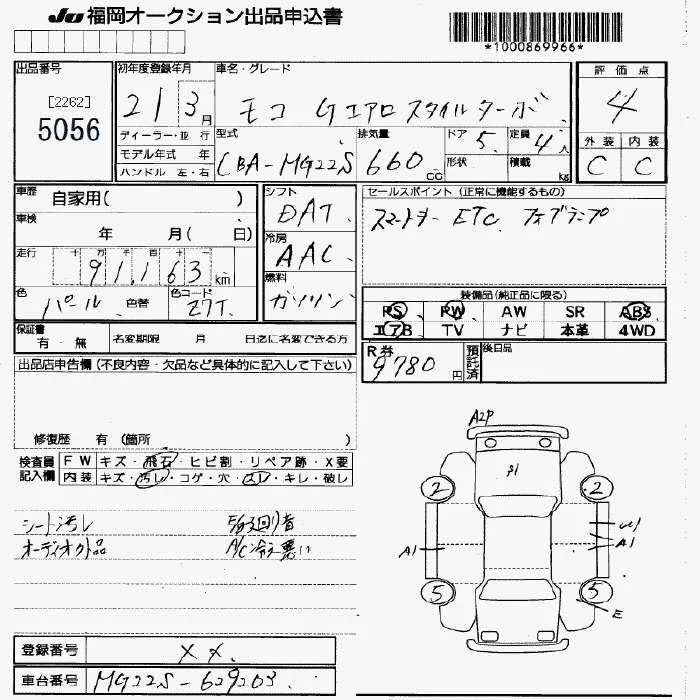 JU 福岡オークション出品申込書
*1000869966*
出品番号
[2262]
5056
初年度登録年月
21 3月
車名・グレード
モコ Gエアロスタイルターボ
評価点
4
ディーラー・並 行
モデル年式 年
ハンドル 左・右
型式
CBA-MG22S
排気量
660 CC
ドア 5
形状
定員 4人
積載 kg
外装 内装
C C
車歴 自家用( )
車検
年 月( 日)
走行 十 万 千 百 十 一
91,163 km
色
パール
色替
色コード
Z7T
シフト
DAT
冷房
AAC
燃料
ガソリン
セールスポイント (正常に機能するもの)
スマートキー ETC フォグランプ
装備品(純正品に限る)
PS PW AW SR ABS
エアB TV ナビ 本革 4WD
保証書
有・無
名変期限 月 日迄に名変できる方
R券
9780円
預託済
後日品
出品店申告欄(不良内容・欠品など具体的に記入して下さい)
修復歴 有 (箇所 )
検査員記入欄
FW キズ・飛石・ヒビ割・リペア跡・X要
内装 キズ・汚レ・コゲ・穴・スレ・キレ・破レ
シート汚レ
オーディオ欠品
A/C冷え悪い
A2P
2 2
A1
A1
5 5
E
登録番号 ××
車台番号 MG22S-629203